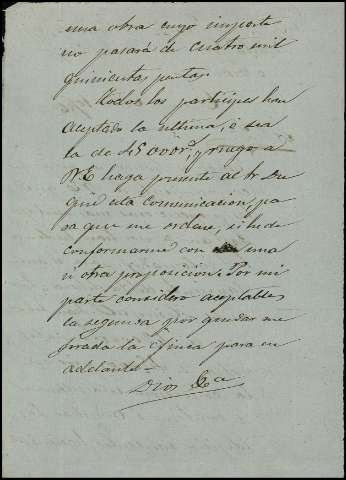 una obra cuyo importe
no pasará de cuatro mil
quinientas pesetas.
Todos los partícipes han
aceptado la última, ó sea
la de 45000 r.s, y ruego a
V.E. haga presente al Sr. Du
que esta comunicacion, pa
ra que me ordene, si he de
conformarme con una
ú otra proposicion. Por mi
parte considero aceptable
la segunda por quedar me
jorada la finca para en
adelante.
Dios &a